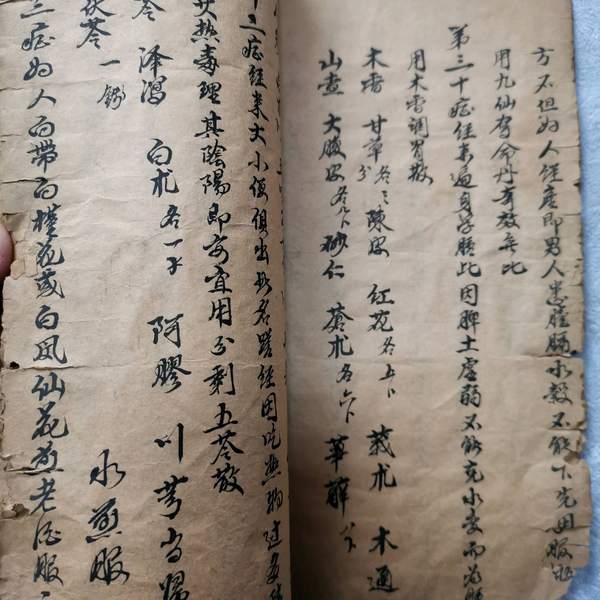 方不但妇人经产即男人患膨肠水谷不能下先用服
用九仙夺命丹有效無比
第三十症经来遍身浮肿此因脾土虚弱不能克水变而为肿
用木香调胃散
木香 甘草各三分 陳皮 红花各五卜 莪朮 木通
山查 大腹皮各九卜 砂仁 蒼朮各六卜 萆薢
十二症经来大小便俱出此名蹉经因吃热物过多
热毒理其陰陽即安宜用分利五苓散
苓 泽瀉 白朮各一子 阿膠 川芎 当归
茯苓一錢 水煎服
三症妇人白带白槿花或白凤仙花煎老酒服